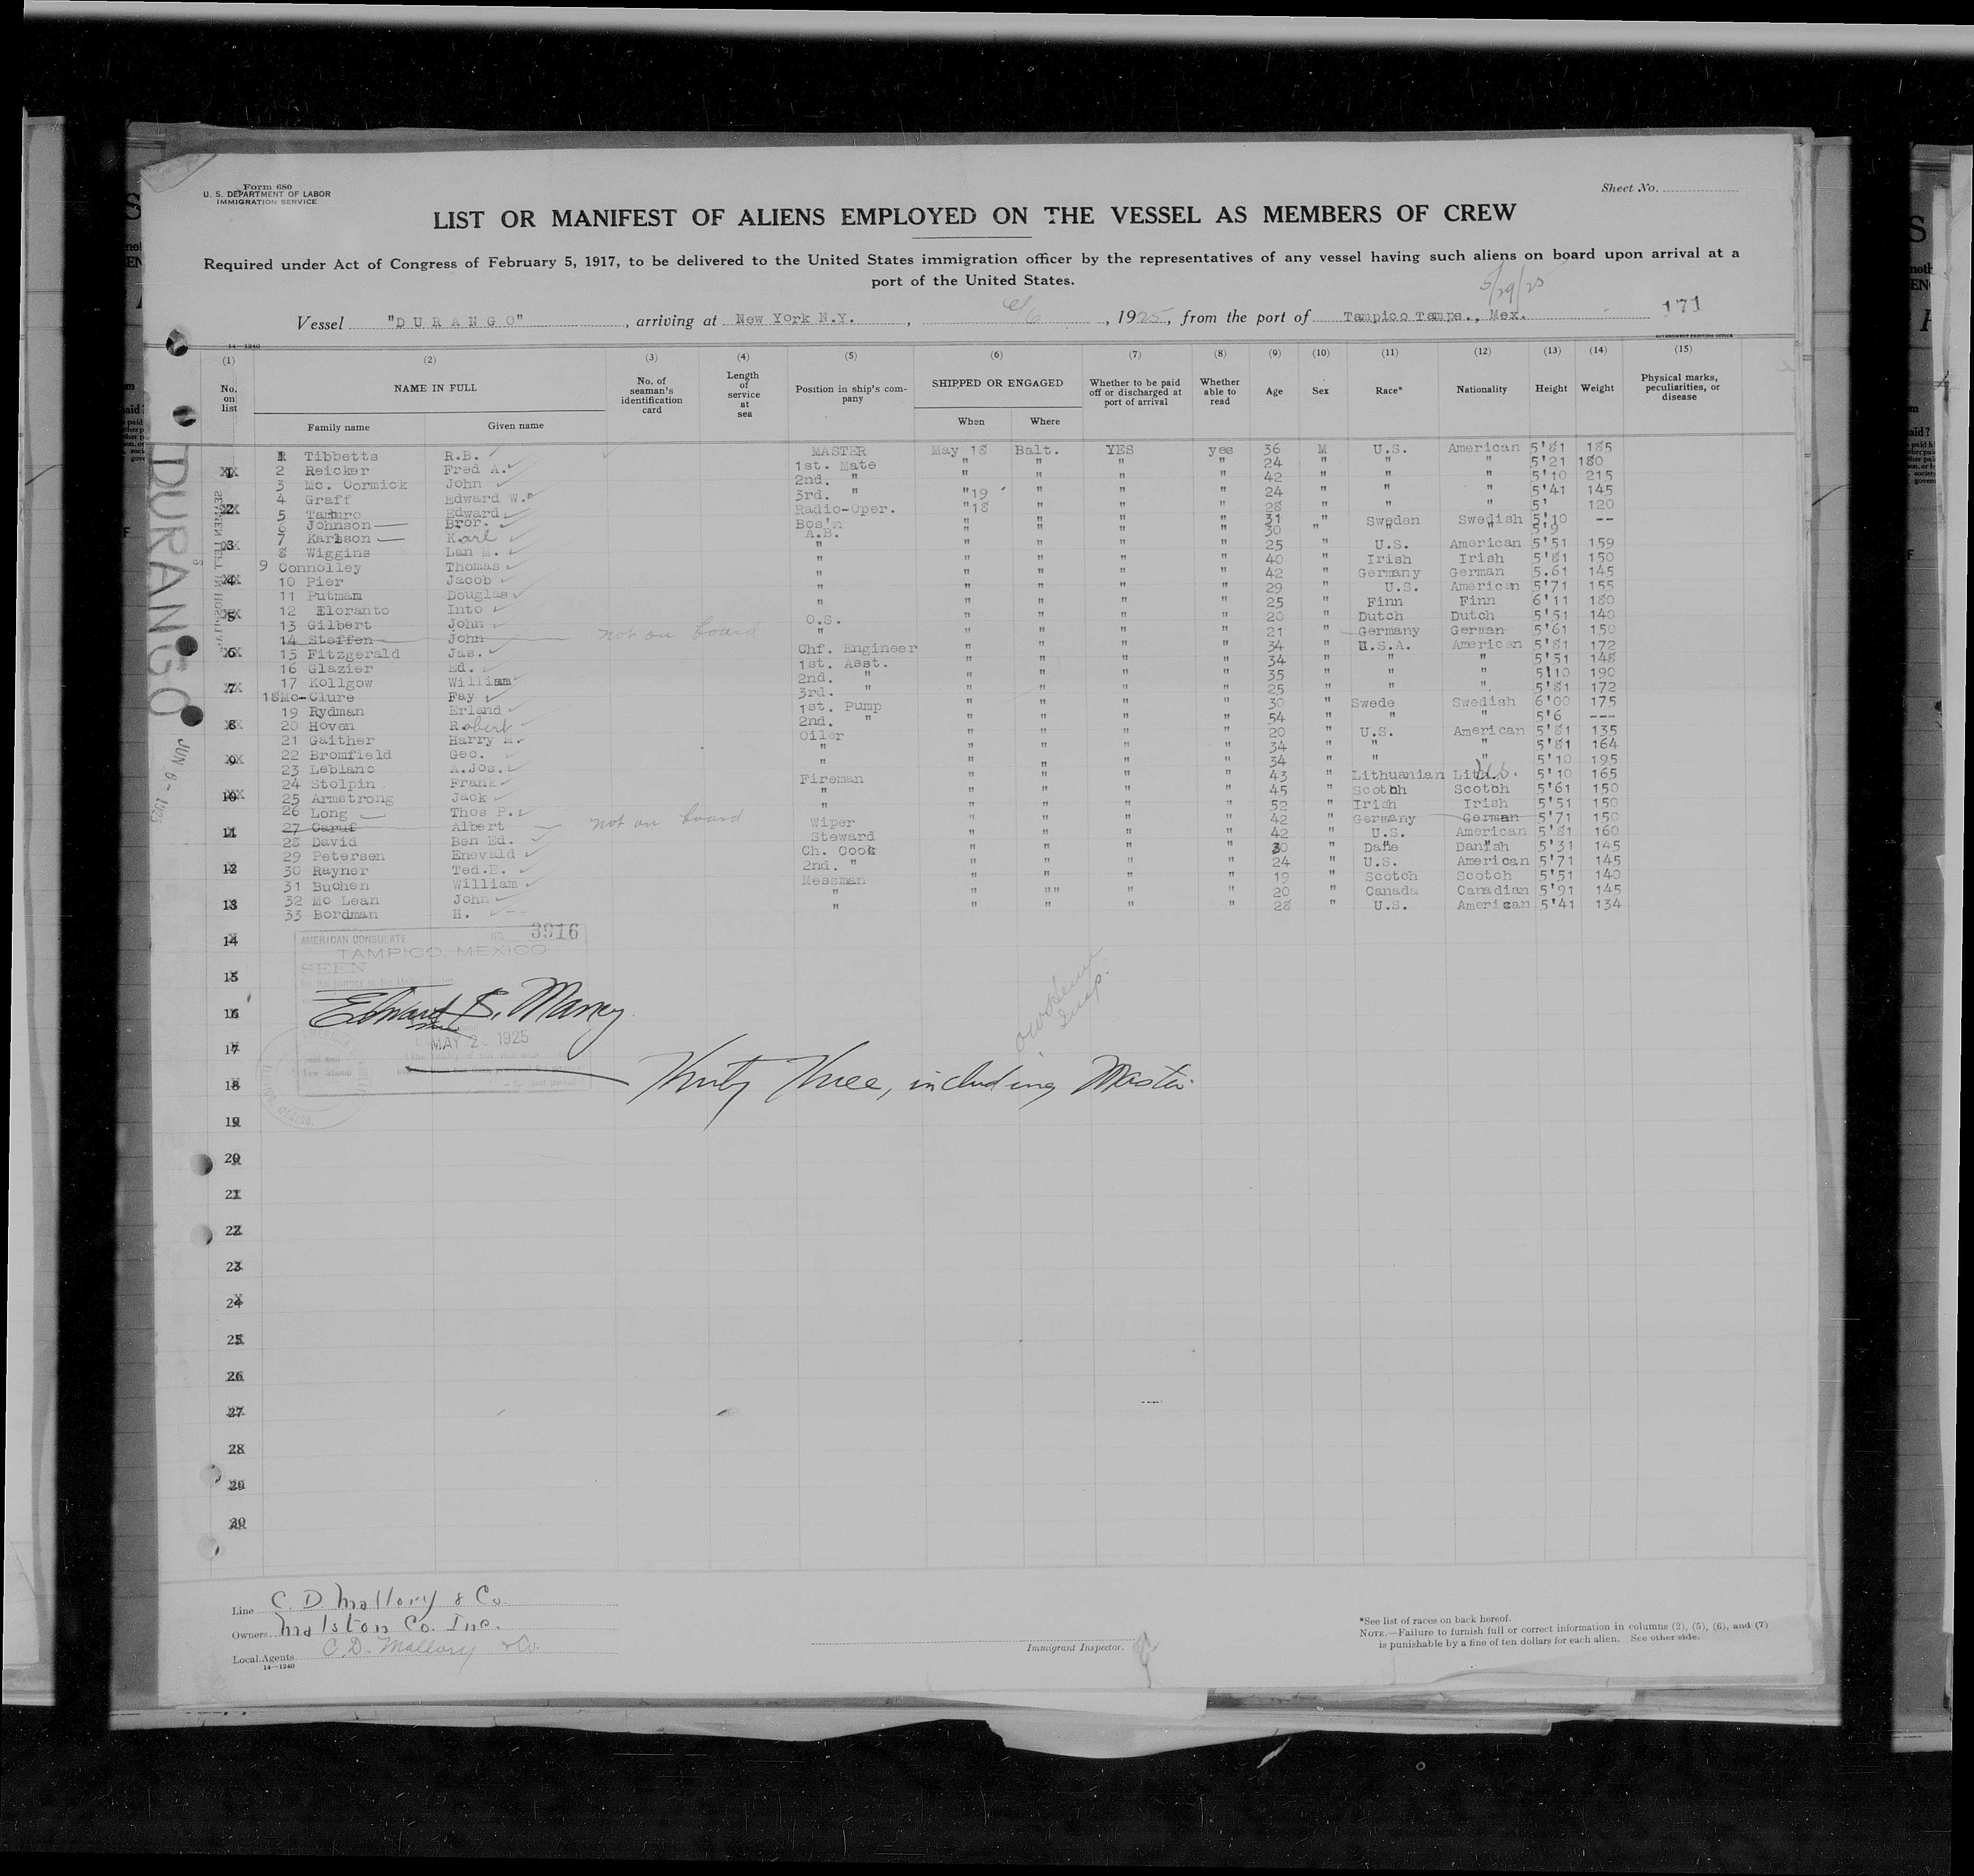 Form 680
U. S. DEPARTMENT OF LABOR
IMMIGRATION SERVICE
Sheet No.
LIST OR MANIFEST OF ALIENS EMPLOYED ON THE VESSEL AS MEMBERS OF CREW
Required under Act of Congress of February 5, 1917, to be delivered to the United States immigration officer by the representatives of any vessel having such aliens on board upon arrival at a
port of the United States.
5/29/25
Vessel "DURANGO", arriving at New York N.Y., 6/6, 1925, from the port of Tampico Tamps., Mex. 171
14—1240
GOVERNMENT PRINTING OFFICE
(1) (2) (3) (4) (5) (6) (7) (8) (9) (10) (11) (12) (13) (14) (15)
No. on list NAME IN FULL Family name Given name No. of seaman's identification card Length of service at sea Position in ship's company SHIPPED OR ENGAGED When Where Whether to be paid off or discharged at port of arrival Whether able to read Age Sex Race* Nationality Height Weight Physical marks, peculiarities, or disease
1 Tibbetts R.B. MASTER May 18 Balt. YES yes 36 M U.S. American 5'81 185
2 Reicker Fred A. 1st. Mate " " " " 24 " " " 5'21 180
3 Mc. Cormick John 2nd. " " " " " 42 " " " 5'10 215
4 Graff Edward W. 3rd. " "19 " " " 24 " " " 5'41 145
5 Tamburo Edward Radio-Oper. "18 " " " 28 " " " 5' 120
6 Johnson Bror. Bos'n " " " " 31 " Sweden Swedish 5'10 --
7 Karlson Karl A.B. " " " " 30 " " " 5'9
8 Wiggins Lan M. " " " " " 25 " U.S. American 5'51 159
9 Connolley Thomas " " " " " 40 " Irish Irish 5'81 150
10 Pier Jacob " " " " " 42 " Germany German 5.61 145
11 Putmam Douglas " " " " " 29 " U.S. American 5'71 155
12 Eloranto Into " " " " " 25 " Finn Finn 6'11 180
13 Gilbert John O.S. " " " " 20 " Dutch Dutch 5'51 140
14 Steffen John not on board " " " " " 21 " Germany German 5'61 150
15 Fitzgerald Jas. Chf. Engineer " " " " 34 " U.S.A. American 5'81 172
16 Glazier Ed. 1st. Asst. " " " " 34 " " " 5'51 148
17 Kollgow William 2nd. " " " " " 35 " " " 5'10 190
18 Mc-Clure Fay 3rd. " " " " " 25 " " " 5'81 172
19 Rydman Erland 1st. Pump " " " " 30 " Swede Swedish 6'00 175
20 Hoven Robert 2nd. " " " " " 54 " " " 5'6 ---
21 Gaither Harry M. Oiler " " " " 20 " U.S. American 5'81 135
22 Bromfield Geo. " " " " " 34 " " " 5'81 164
23 Leblanc A.Jos. " " " " " 34 " " " 5'10 195
24 Stolpin Frank Fireman " " " " 43 " Lithuanian Lith. 5'10 165
25 Armstrong Jack " " " " " 45 " Scotch Scotch 5'61 150
26 Long Thos P. " " " " " 52 " Irish Irish 5'51 150
27 Garuf Albert not on board Wiper " " " " 42 " Germany German 5'71 150
28 David Ben Ed. Steward " " " " 42 " U.S. American 5'81 160
29 Petersen Enevald Ch. Cook " " " " 30 " Dane Danish 5'31 145
30 Rayner Ted.E. 2nd. " " " " " 24 " U.S. American 5'71 145
31 Buchen William Messman " " " " 19 " Scotch Scotch 5'51 140
32 Mc Lean John " " "" " " 20 " Canada Canadian 5'91 145
33 Bordman H. -- " " " " " 28 " U.S. American 5'41 134
DURANGO
JUN 6 - 1925
AMERICAN CONSULATE No. 3916
TAMPICO, MEXICO
SEEN
Edward S. Maney
MAY 2 1925
Thirty Three, including Master.
1
2
3
4
5
6
7
8
9
10
11
12
13
14
15
16
17
18
19
20
21
22
23
24
25
26
27
28
29
30
Line C. D. Mallory & Co.
Owners Malston Co. Inc.
Local Agents C. D. Mallory & Co.
14—1240
Immigrant Inspector.
*See list of races on back hereof.
NOTE.—Failure to furnish full or correct information in columns (2), (5), (6), and (7)
is punishable by a fine of ten dollars for each alien. See other side.